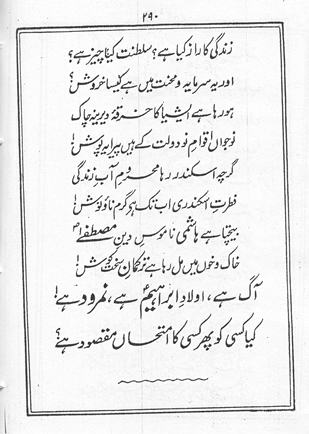 ۲۹۰
زندگی کا راز کیا ہے؟ سلطنت کیا چیز ہے؟
اور یہ سرمایہ و محنت میں ہے کیسا خروش؟
ہو رہا ہے ایشیا کا خرقۂ دیرینہ چاک
نوجواں اقوامِ نو دولت کے ہیں پیرایہ پوش!
گرچہ اسکندر رہا محرومِ آبِ زندگی
فطرتِ اسکندری اب تک ہے گرمِ ناؤ نوش!
بیچتا ہے ہاشمی ناموسِ دینِ مصطفےٰؐ
خاک و خوں میں مل رہا ہے ترکمانِ سخت کوش!
آگ ہے، اولادِ ابراہیمؑ ہے، نمرود ہے!
کیا کسی کو پھر کسی کا امتحاں مقصود ہے؟